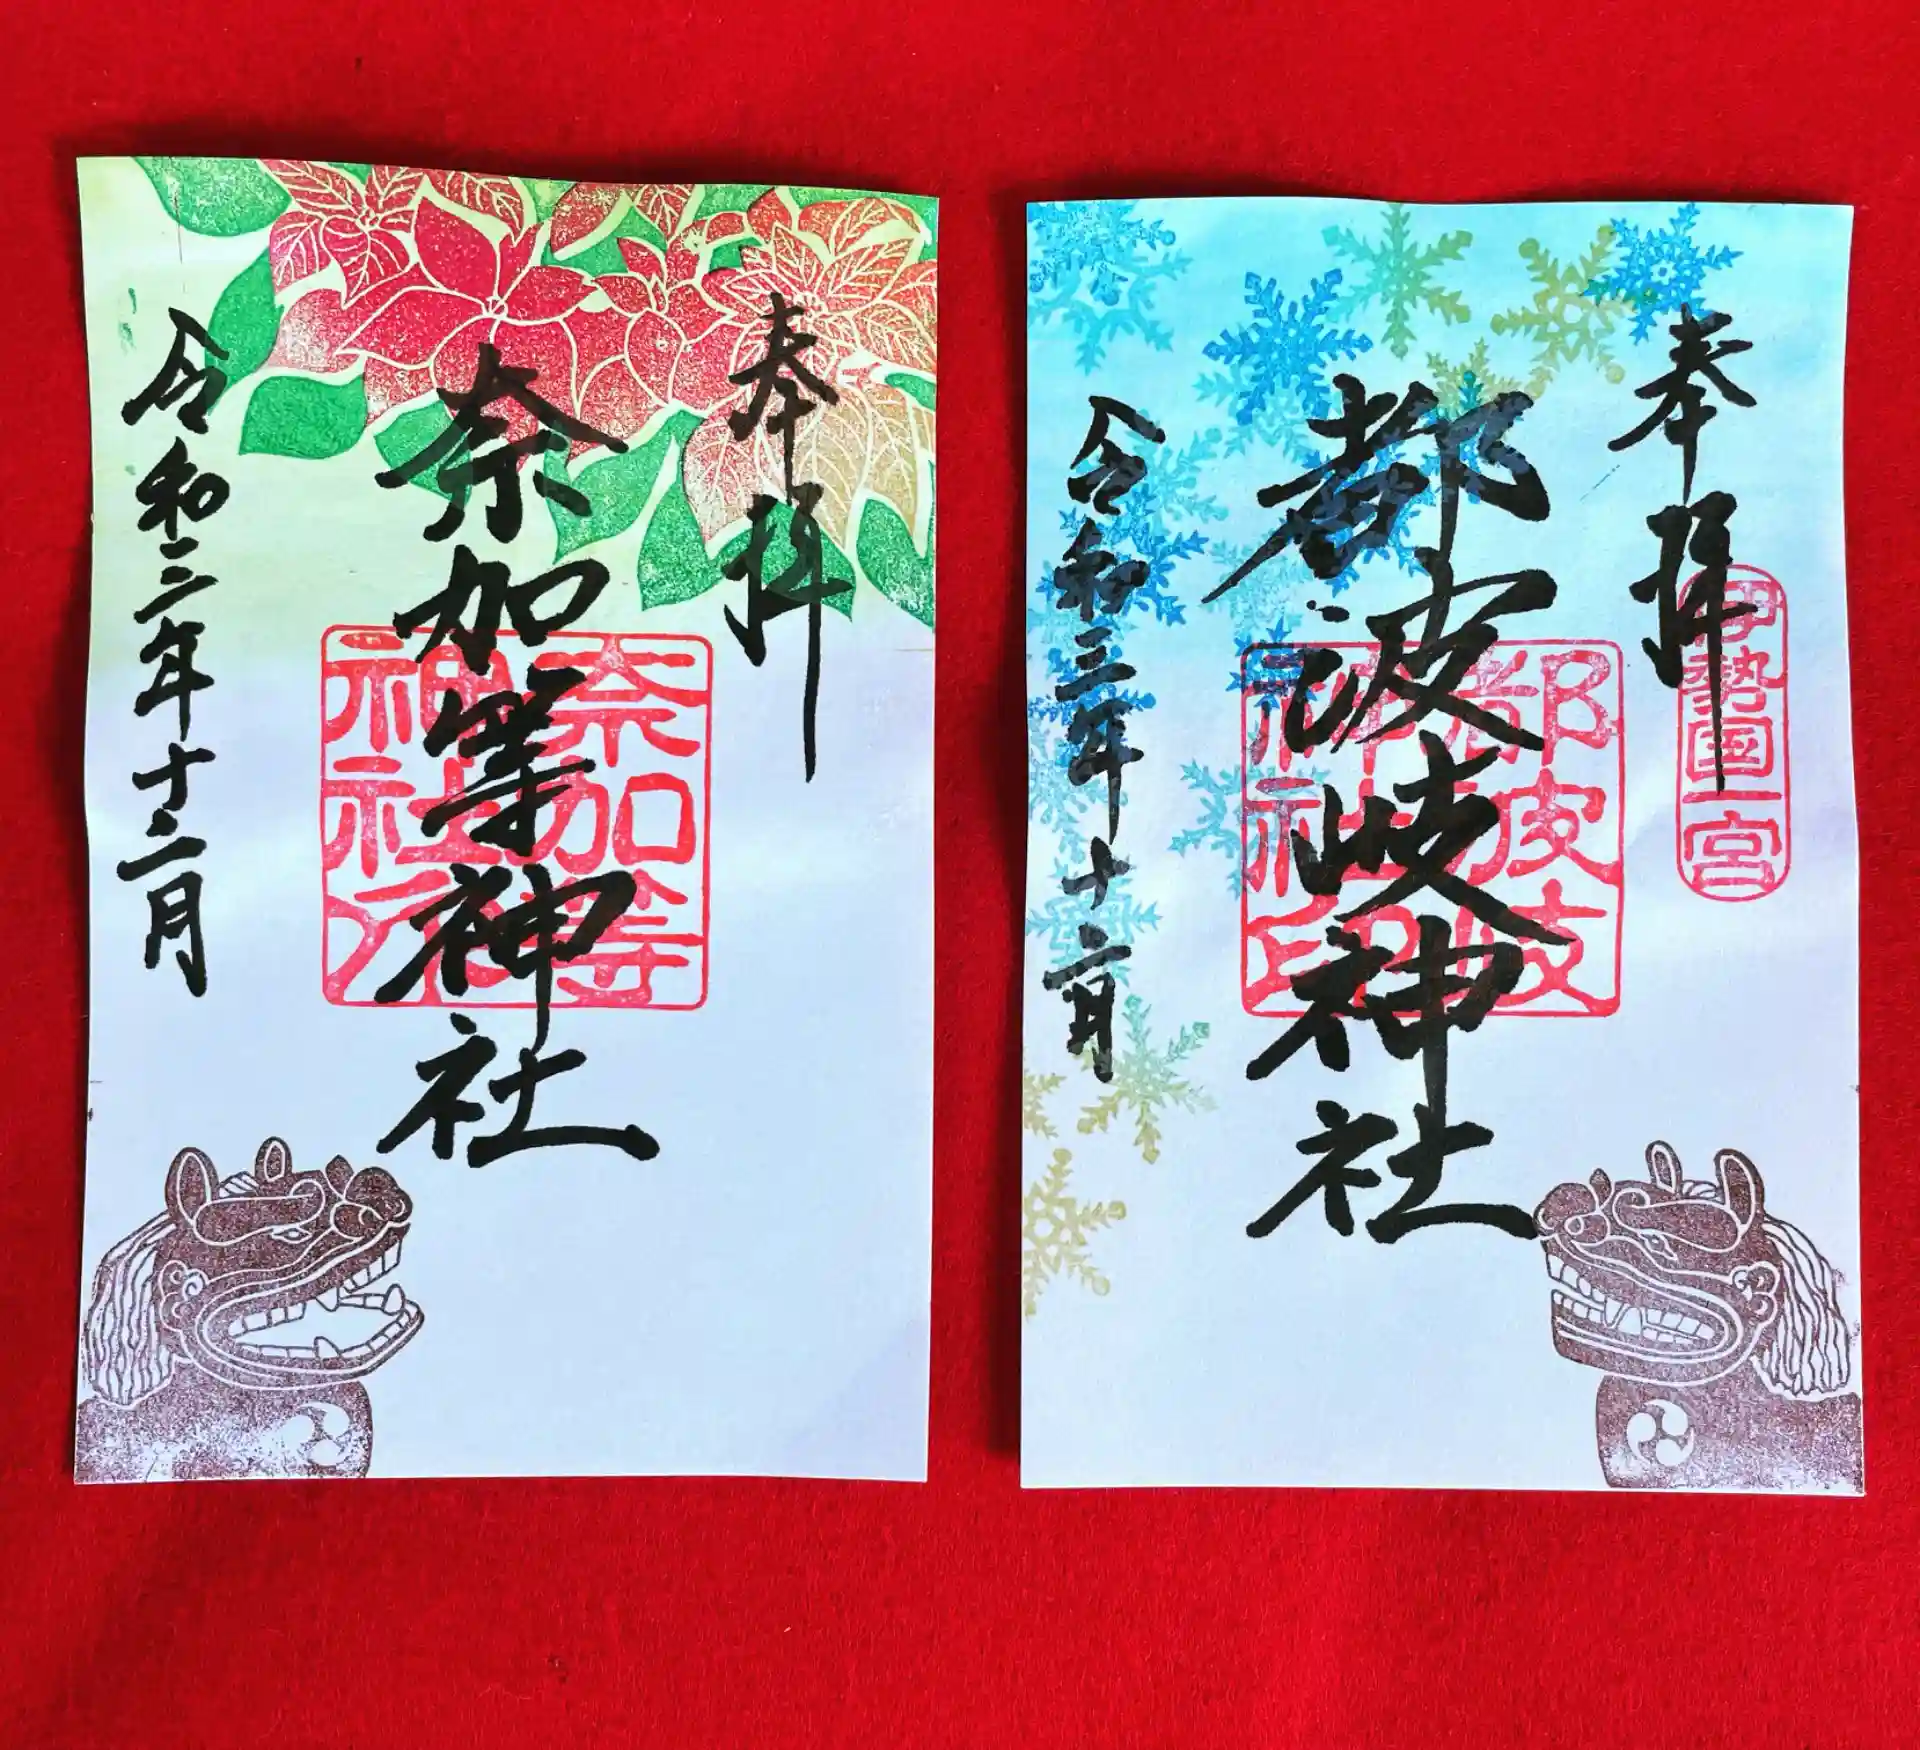 奉拝
奈加等神社
奈加等
神社
令和三年十二月
奉拝
伊勢国一宮
都波岐神社
都波岐
神社印
令和三年十二月